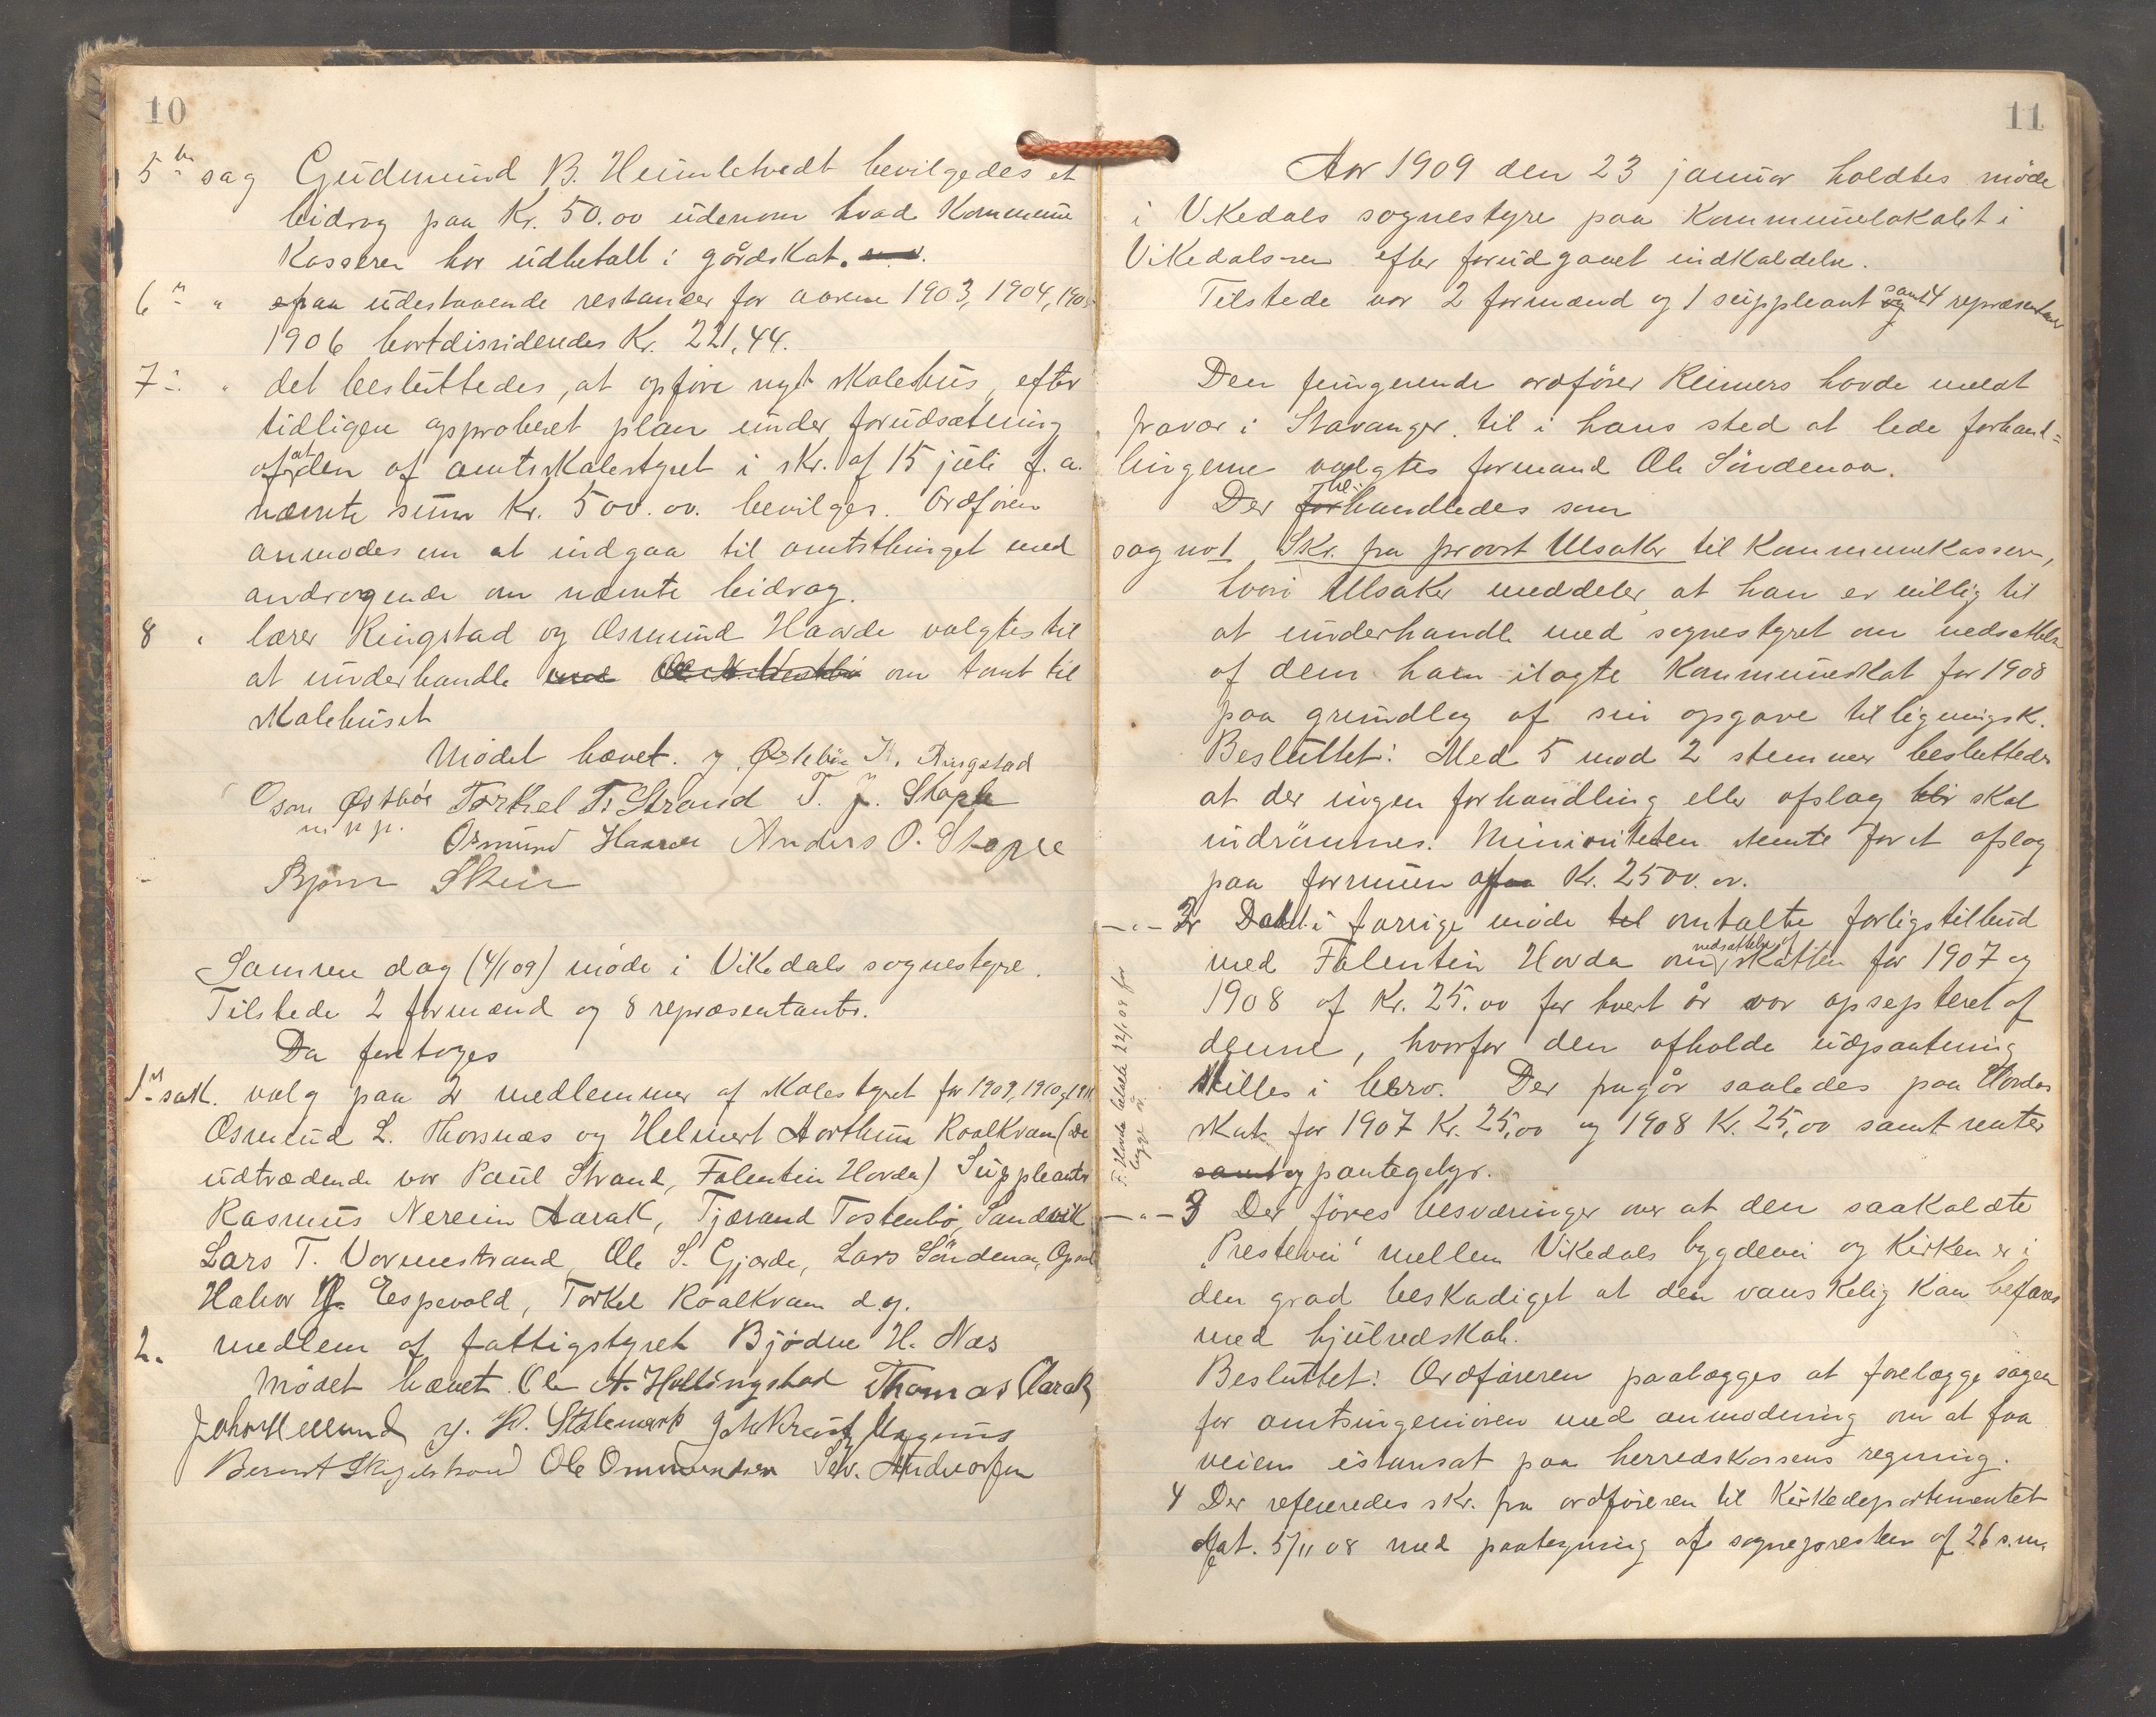 10
5te sag Gudmund B. Heimletvedt bevilgedes et
bidrag paa Kr. 50.00 udenom hvad Kommune
Kasseren har udbetalt i gårdskat.
6te " paa udestaaende restanser for aarene 1903, 1904, 1905
1906 bortdividendes Kr. 221,44.
7de " det besluttedes, at opføre nyt skolehus, efter
tidligere approberet plan under forudsætning
af at den af amtsskolestyret i skr. af 15 juli f. a.
nævnte sum Kr. 500.00. bevilges. Ordføren
anmodes om at indgaa til amtsthinget med
andragende om nævnte bidrag.
8 " lærer Ringstad og Osmund Haavde valgtes til
at underhandle med Ole N. Vestbø om tomt til
skolehuset
Mødet hævet. J. Østebø K. Ringstad
Osm Østbøe Torkel T. Strand T. J. Stople
m p p.
Osmund Haarde Anders O. Stople
Bjørn Skeie
Samme dag (4/1 09) møde i Vikedals sognestyre.
Tilstede 2 formænd og 8 repræsentanter.
Da foretoges
1ste sak. valg paa 2 medlemmer af skolestyret for 1909, 1910 og 1911
Osmund L. Thorsnæs og Helmert Aorthun Roalkvam (De
udtrædende var Paul Strand, Falentin Hovda) Suppleanter
Rasmus Nereim Aarak, Tjærand Tostenbø, Sandvik
Lars T. Vormestrand, Ole S. Gjerde, Lars Söndenaa, Opsal
Halvor Espevold, Torkel Roalkvam d.y.
2. medlem af fattigstyret Bjödne H. Næs
Mødet hævet. Ole A. Hellingstad Thomas Aarak
John Mælund J. H. Stølemark Joh Kreutz Magnus
Bernt Skipelstrand Ole Ommundsen Sev. Andvorsen
11
Aar 1909 den 23 januar holdtes möde
i Vikedals sognestyre paa Kommunelokalet i
Vikedalsøren efter forudgaaet indkaldelse.
Tilstede var 2 formænd og 1 suppleant og samt 4 repræsentanter
Den fungerende ordfører Reimers havde meldt
fravær i Stavanger. til i hans sted at lede forhand=
lingerne valgtes formand Ole Söndenaa.
Der forbehandledes som
sag no 1 Skr. fra provst Ulsaker til Kommunekassereren,
hvori Ulsaker meddeler at han er villig til
at underhandle med sognestyret om nedsættelse
af dem ham ilagte Kommuneskat for 1908
paa grundlag af sin opgave til ligningsk.
Besluttet: Med 5 mod 2 stemmer besluttedes
at der ingen forhandling eller afslag blir skal
indrömmes. Minioriteten stemte for et afslag
paa formuen af paa Kr. 2500.00.
— " — 2 Det i forrige möde til omtalte forligstilbud
med Falentin Hovda om nedsættelse af skatten for 1907 og
1908 af Kr. 25.00 for hvert år var apsepteret af
denne, hvorfor den afholdte udpantning
stilles i bero. Der fragår saaledes paa Hovdas
skat for 1907 Kr. 25,00 og 1908 Kr. 25,00 samt renter
samt og pantegebyr.
F. Hovda betalte 22/1 09 for
begge år.
— " — 3 Der föres besværinger over at den saakaldte
"Prestevei" mellem Vikedals bygdevei og Kirken er i
den grad beskadiget at den vanskelig kan befares
med hjulredskab.
Besluttet: Ordföreren paalægges at forelægge sagen
for amtsingeniören med anmodning om at faa
veien istansat paa herredskassens regning.
4 Der refereredes skr. fra ordføreren til Kirkedepartementet
dat. 5/11 08 med paategning af sognepresten af 26 s.m.